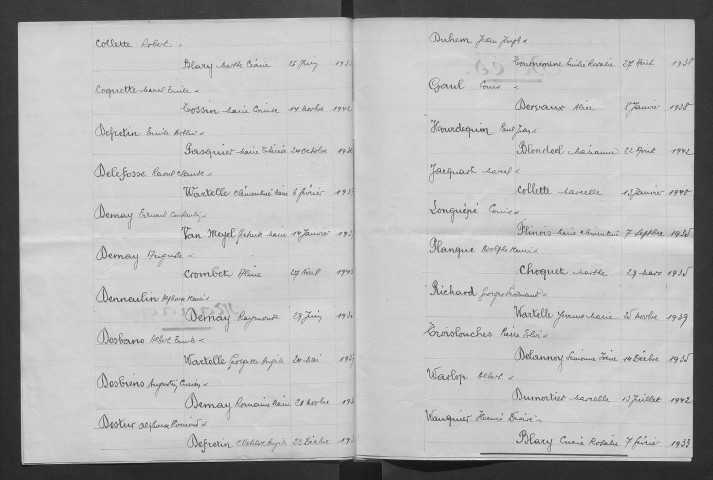 Collette Robert
Blary Marthe Marie 26 Juin 193
Coquette Marcel Emile
Cossin Marie Louise 14 Novbre 1942
Defretin Emile Arthur
Gasquier Marie 24 Octobre 19
Delefosse Raoul
Wartelle Clémentine Marie 6 février 193
Demay Ernest
Van Meyel Marie 14 Janvier 193
Demay Auguste
Crombet 27 Avril 194
Denneulin Alphonse Henri
Demay Raymonde 29 Juin 193
Desbans Albert Emile
Wartelle Georgette 24 Mai 193
Desbiens Augustin
Demay Romaine Marie 28 Novbre 19
Destur Alphonse
Defretin Clotilde 23 Décbre 19
Duhem Jean Joseph
Tournemine Emilie Rosalie 27 Avril 1938
Gaul Louis
Dervaux Alice 8 Janvier 1938
Hourdequin Paul Jean
Blondeel Marianne 22 Avril 1942
Jacquart Marcel
Collette Marcelle 13 Janvier 1940
Longuépé Louis
Flinois Marie Clémentine 7 Septbre 1935
Planque Adolphe Henri
Choquet Marthe 29 Mars 1935
Richard Georges Ferdinand
Wartelle Yvonne Marie 25 Novbre 1939
Troislouches Pierre Eloi
Delannoy Simonne Irène 14 Décbre 1935
Warlop Albert
Dumortier Marcelle 13 Juillet 1942
Wauquier Henri Désiré
Blary Lucie Rosalie 7 février 1933